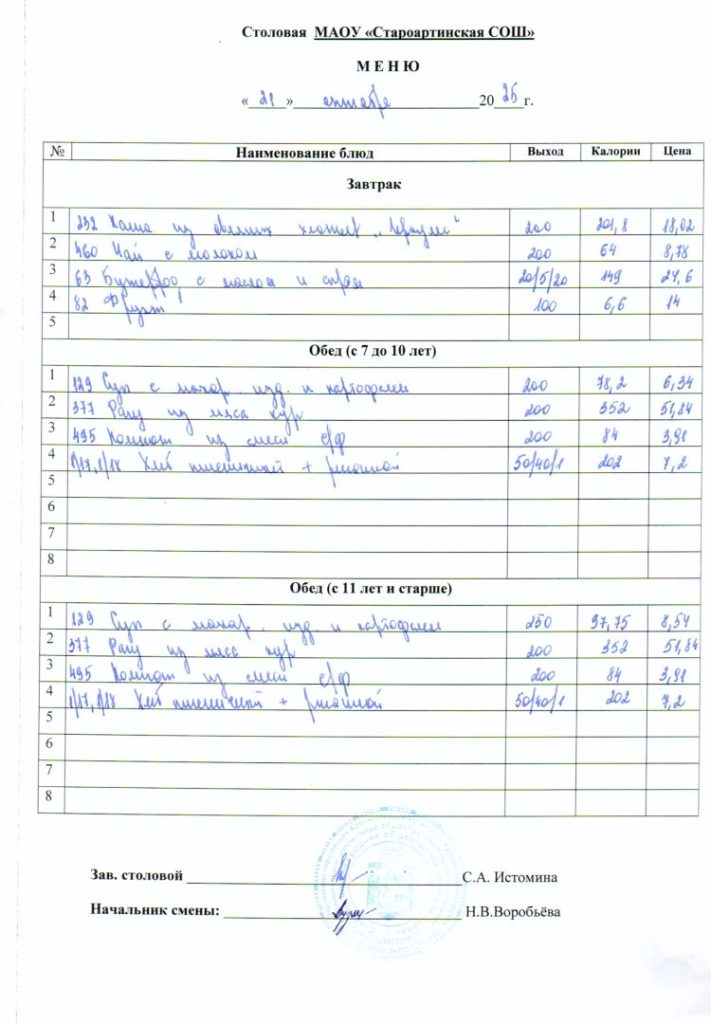 Столовая МАОУ «Староартинская СОШ»
М Е Н Ю
« 21 » октября 20 25 г.
№ Наименование блюд Выход Калории Цена
Завтрак
1 232 Каша из овсяных хлопьев „Геркулес“ 200 201,8 18,02
2 460 Чай с молоком 200 64 8,78
3 63 Бутерброд с маслом и сыром 20/5/20 149 24,6
4 82 Фрукт 100 6,6 14
5
Обед (с 7 до 10 лет)
1 129 Суп с макар. изд. и картофелем 200 78,2 6,34
2 377 Рагу из мяса кур 200 352 51,84
3 495 Компот из смеси с/ф 200 84 3,91
4 1/17,1/18 Хлеб пшеничный + ржаной 50/40/1 202 7,2
5
6
7
8
Обед (с 11 лет и старше)
1 129 Суп с макар. изд. и картофелем 250 97,75 8,54
2 377 Рагу из мяса кур 200 352 51,84
3 495 Компот из смеси с/ф 200 84 3,91
4 1/17,1/18 Хлеб пшеничный + ржаной 50/40/1 202 7,2
5
6
7
8
Зав. столовой С.А. Истомина
Начальник смены: Н.В.Воробьёва